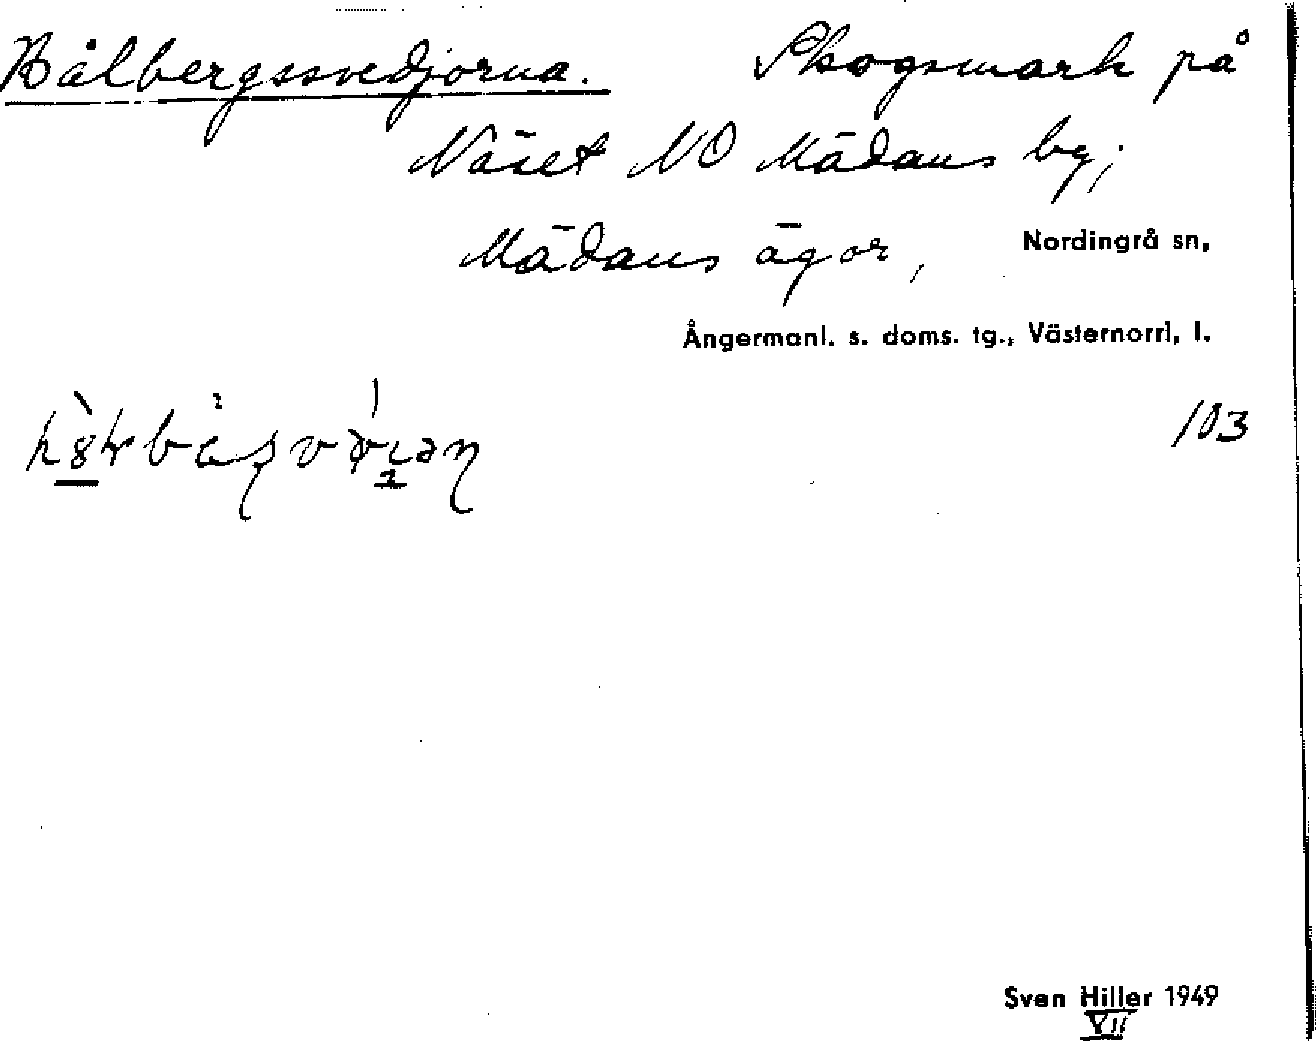 Bålbergssvedjorna. Skogsmark på
Näset NO Mädans by;
Mädans ägor, Nordingrå sn,
Ångermanl. s. doms. tg., Västernorrl. l.
103
Sven Hiller 1949
VII